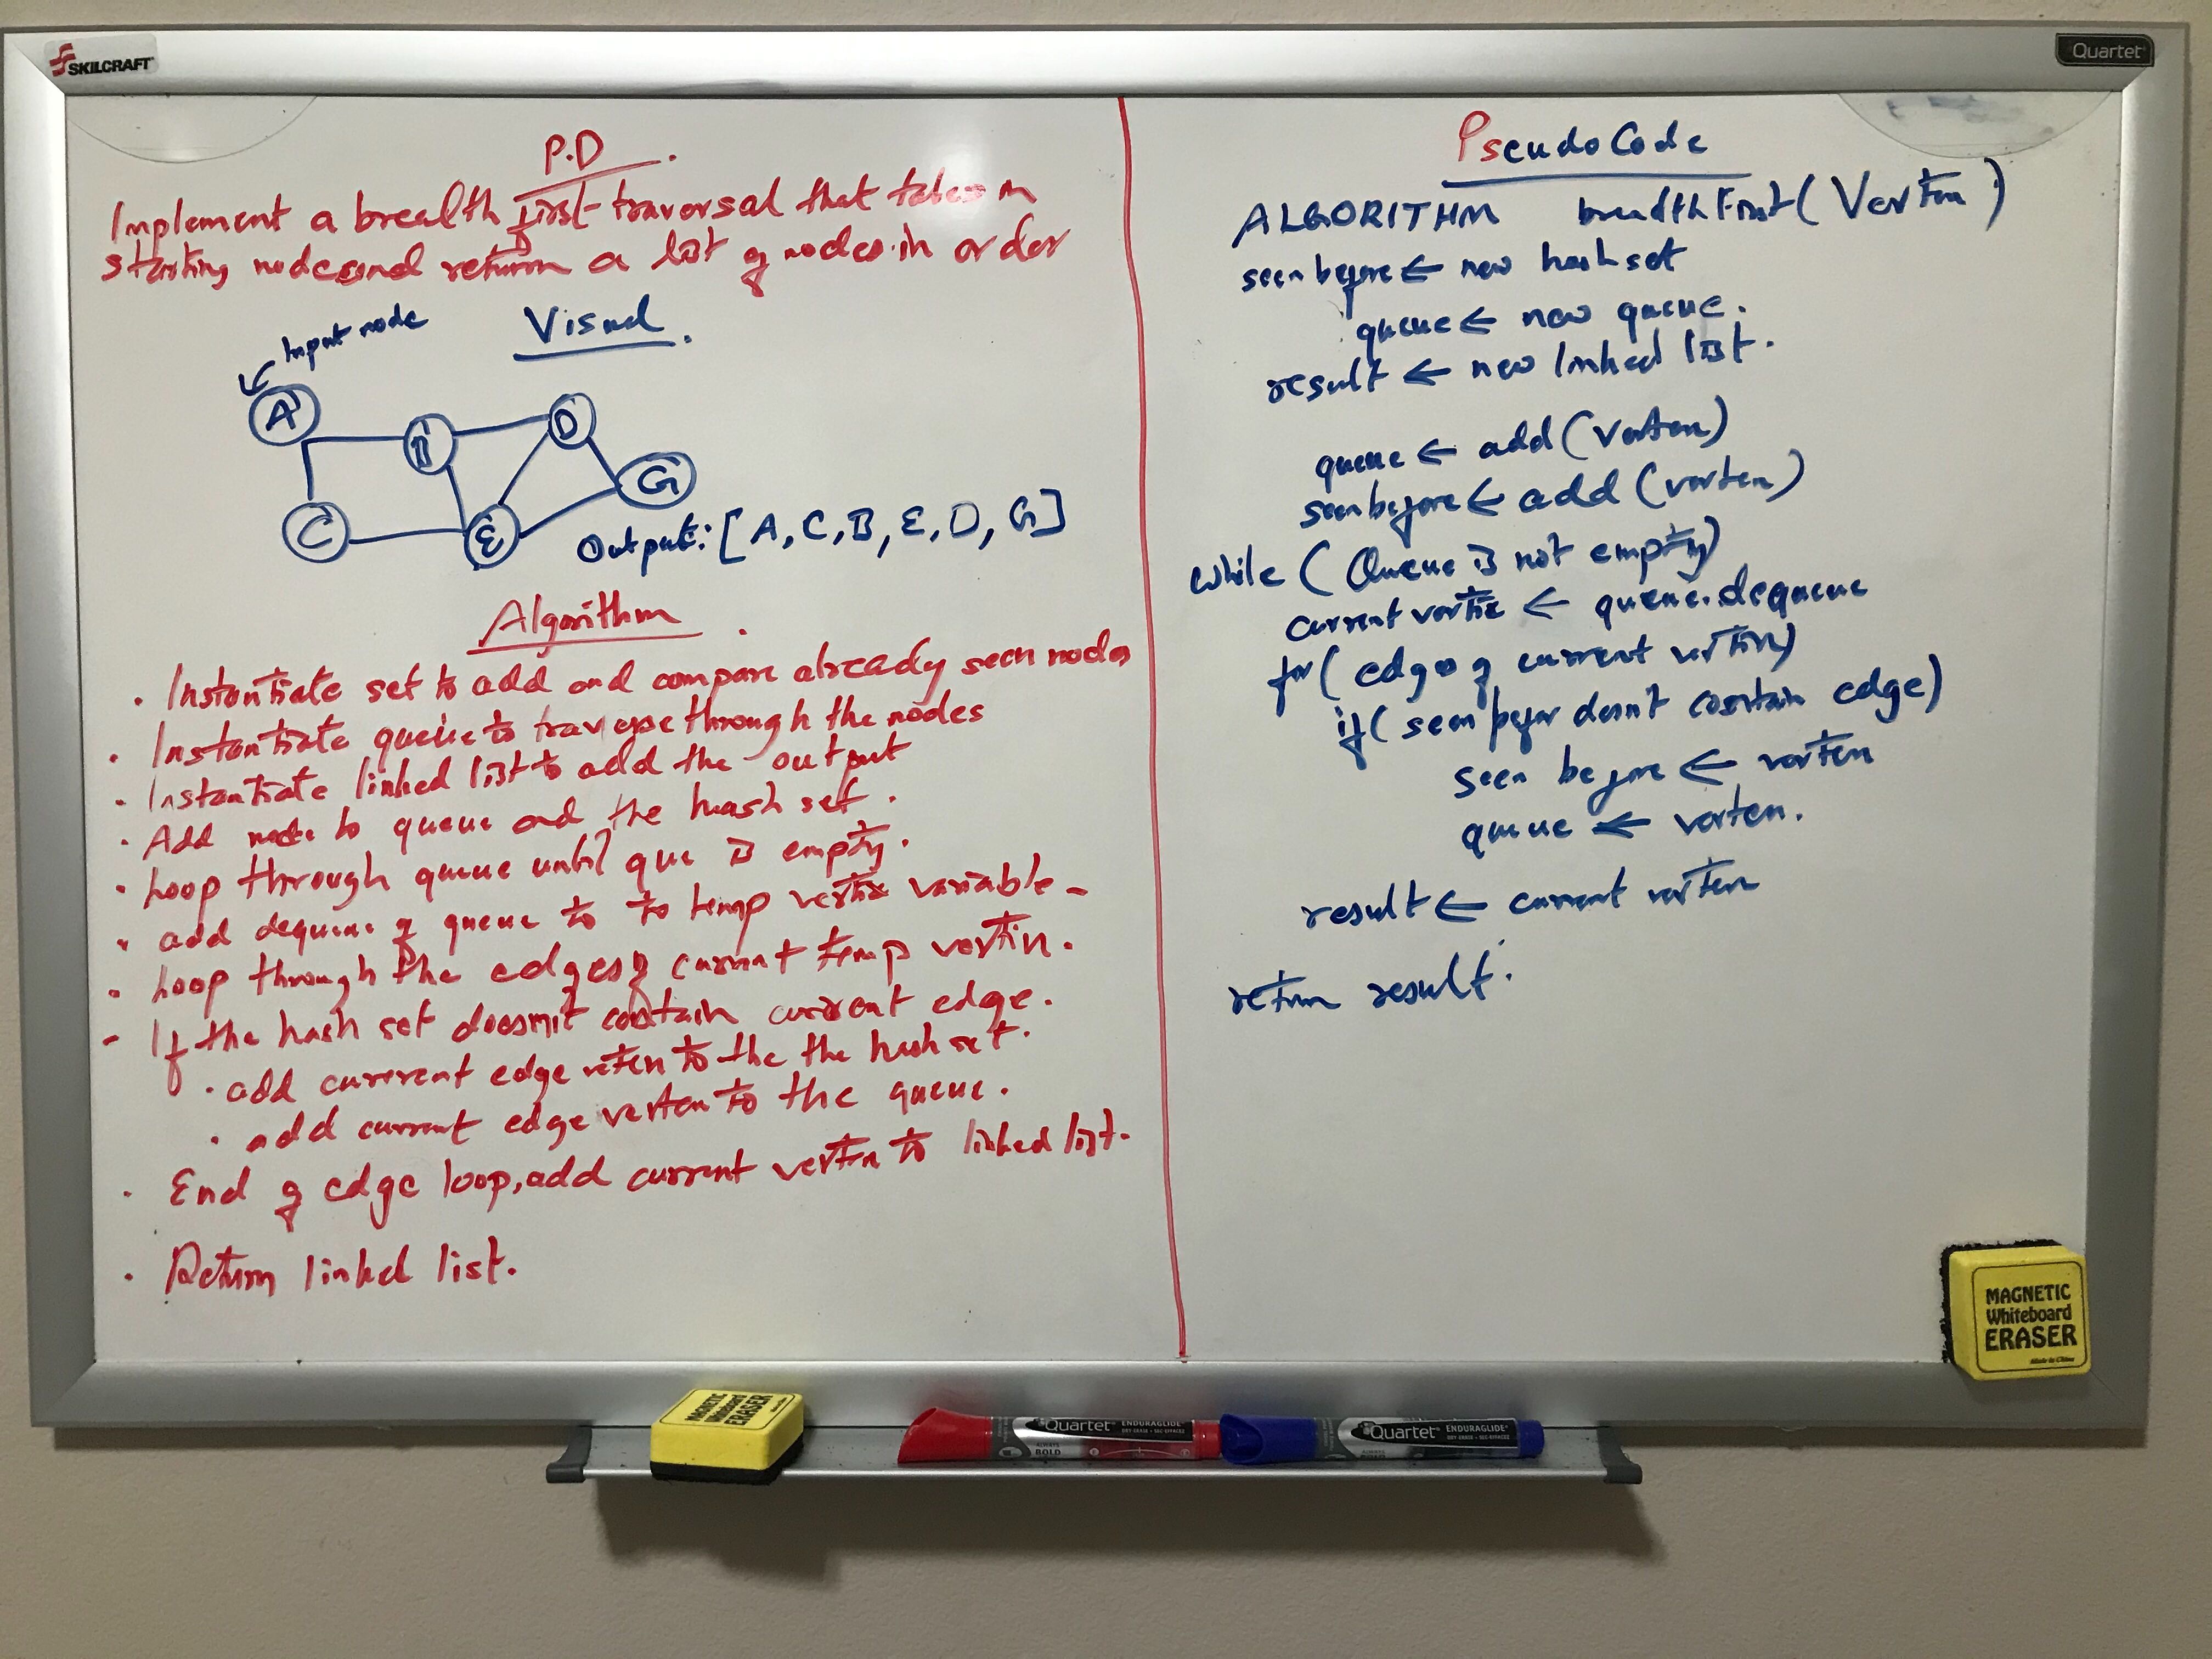 SKILCRAFT
Quartet
P.D
Implement a brealth first-traversal that takes in
starting node and return a list of nodes in order
Input node
Visual
A
B
D
G
C
E
Output: [A, C, B, E, D, G]
Algorithm
• Instantiate set to add and compare already seen nodes
• Instantiate queue to traverse through the nodes
• Instantiate linked list to add the output
• Add node to queue and the hash set.
• Loop through queue until que is empty.
• add dequeue of queue to to temp vertix variable
• Loop through the edges of current temp vertix.
- If the hash set doesnit contain current edge.
• add current edge vertex to the the hash set.
• add current edge vertex to the queue.
• End of edge loop, add current vertex to linked list.
• Return linked list.
PseudoCode
ALGORITHM breadthFirst(Vertex)
seen before ← new hash set
queue ← new queue.
result ← new linked list.
queue ← add (vertex)
seen before ← add (vertex)
while (Queue is not empty)
current vertix ← queue.dequeue
for( edges of current vertix)
if( seen befor doesn't contain edge)
seen before ← vertex
queue ← vertex.
result ← current vertex
return result.
MAGNETIC
Whiteboard
ERASER
Made in China
MAGNETIC
Whiteboard
ERASER
Quartet ENDURAGLIDE
BOLD
Quartet ENDURAGLIDE